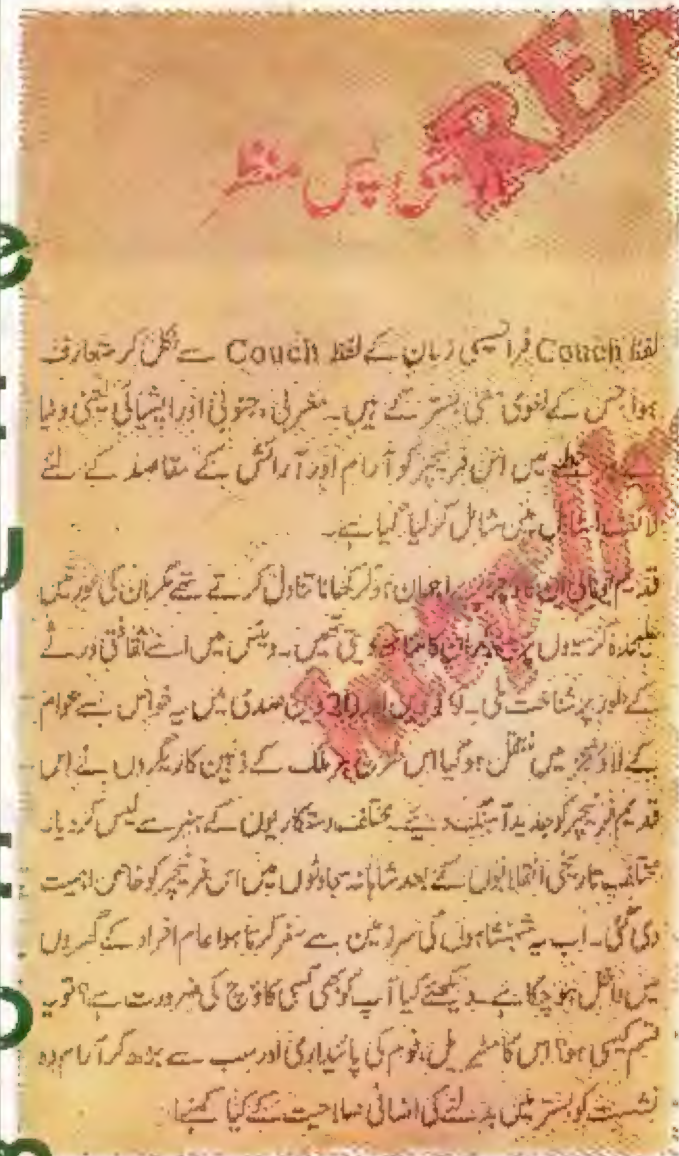 REA
پس منظر
لفظ Couch فرانسیسی زبان کے لفظ Couch سے نکل کر متعارف
ہوا جس کے لغوی معنی بستر کے ہیں۔ مغربی، جنوبی اور ایشیائی یعنی دنیا
میں اس فرنیچر کو آرام اور آرائش کے مقاصد کے لئے
لائف اسٹائل میں شامل کر لیا گیا ہے۔
قدیم یونانی ان کاؤچز پر براجمان ہو کر کھانا تناول کرتے تھے مگر ان کی عورتیں
علیحدہ کرسیوں پر بیٹھ کر ان کا ساتھ دیتی تھیں۔ وینس میں اسے ثقافتی ورثے
کے طور پر شناخت ملی۔ 19 ویں اور 20 ویں صدی میں یہ خواص سے عوام
کے لاؤنجز میں منتقل ہو گیا اس طرح ہر ملک کے ذہین کاریگروں نے اس
قدیم فرنیچر کو جدید آہنگ دیئے۔ مختلف دستکاریوں کے ہنر سے لیس کر دیا۔
مختلف تاریخی انقلابوں کے بعد شاہانہ سجاوٹوں میں اس فرنیچر کو خاص اہمیت
دی گئی۔ اب یہ شہنشاہوں کی سرزمین سے سفر کرتا ہوا عام افراد کے گھروں
میں داخل ہو چکا ہے۔ دیکھئے کیا آپ کو بھی کسی کاؤچ کی ضرورت ہے؟ تو یہ
قسم کیسی ہو؟ اس کا مٹیریل، فوم کی پائیداری اور سب سے بڑھ کر آرام دہ
نشست کو بستر میں بدلنے کی اضافی صلاحیت کے کیا کہنے!